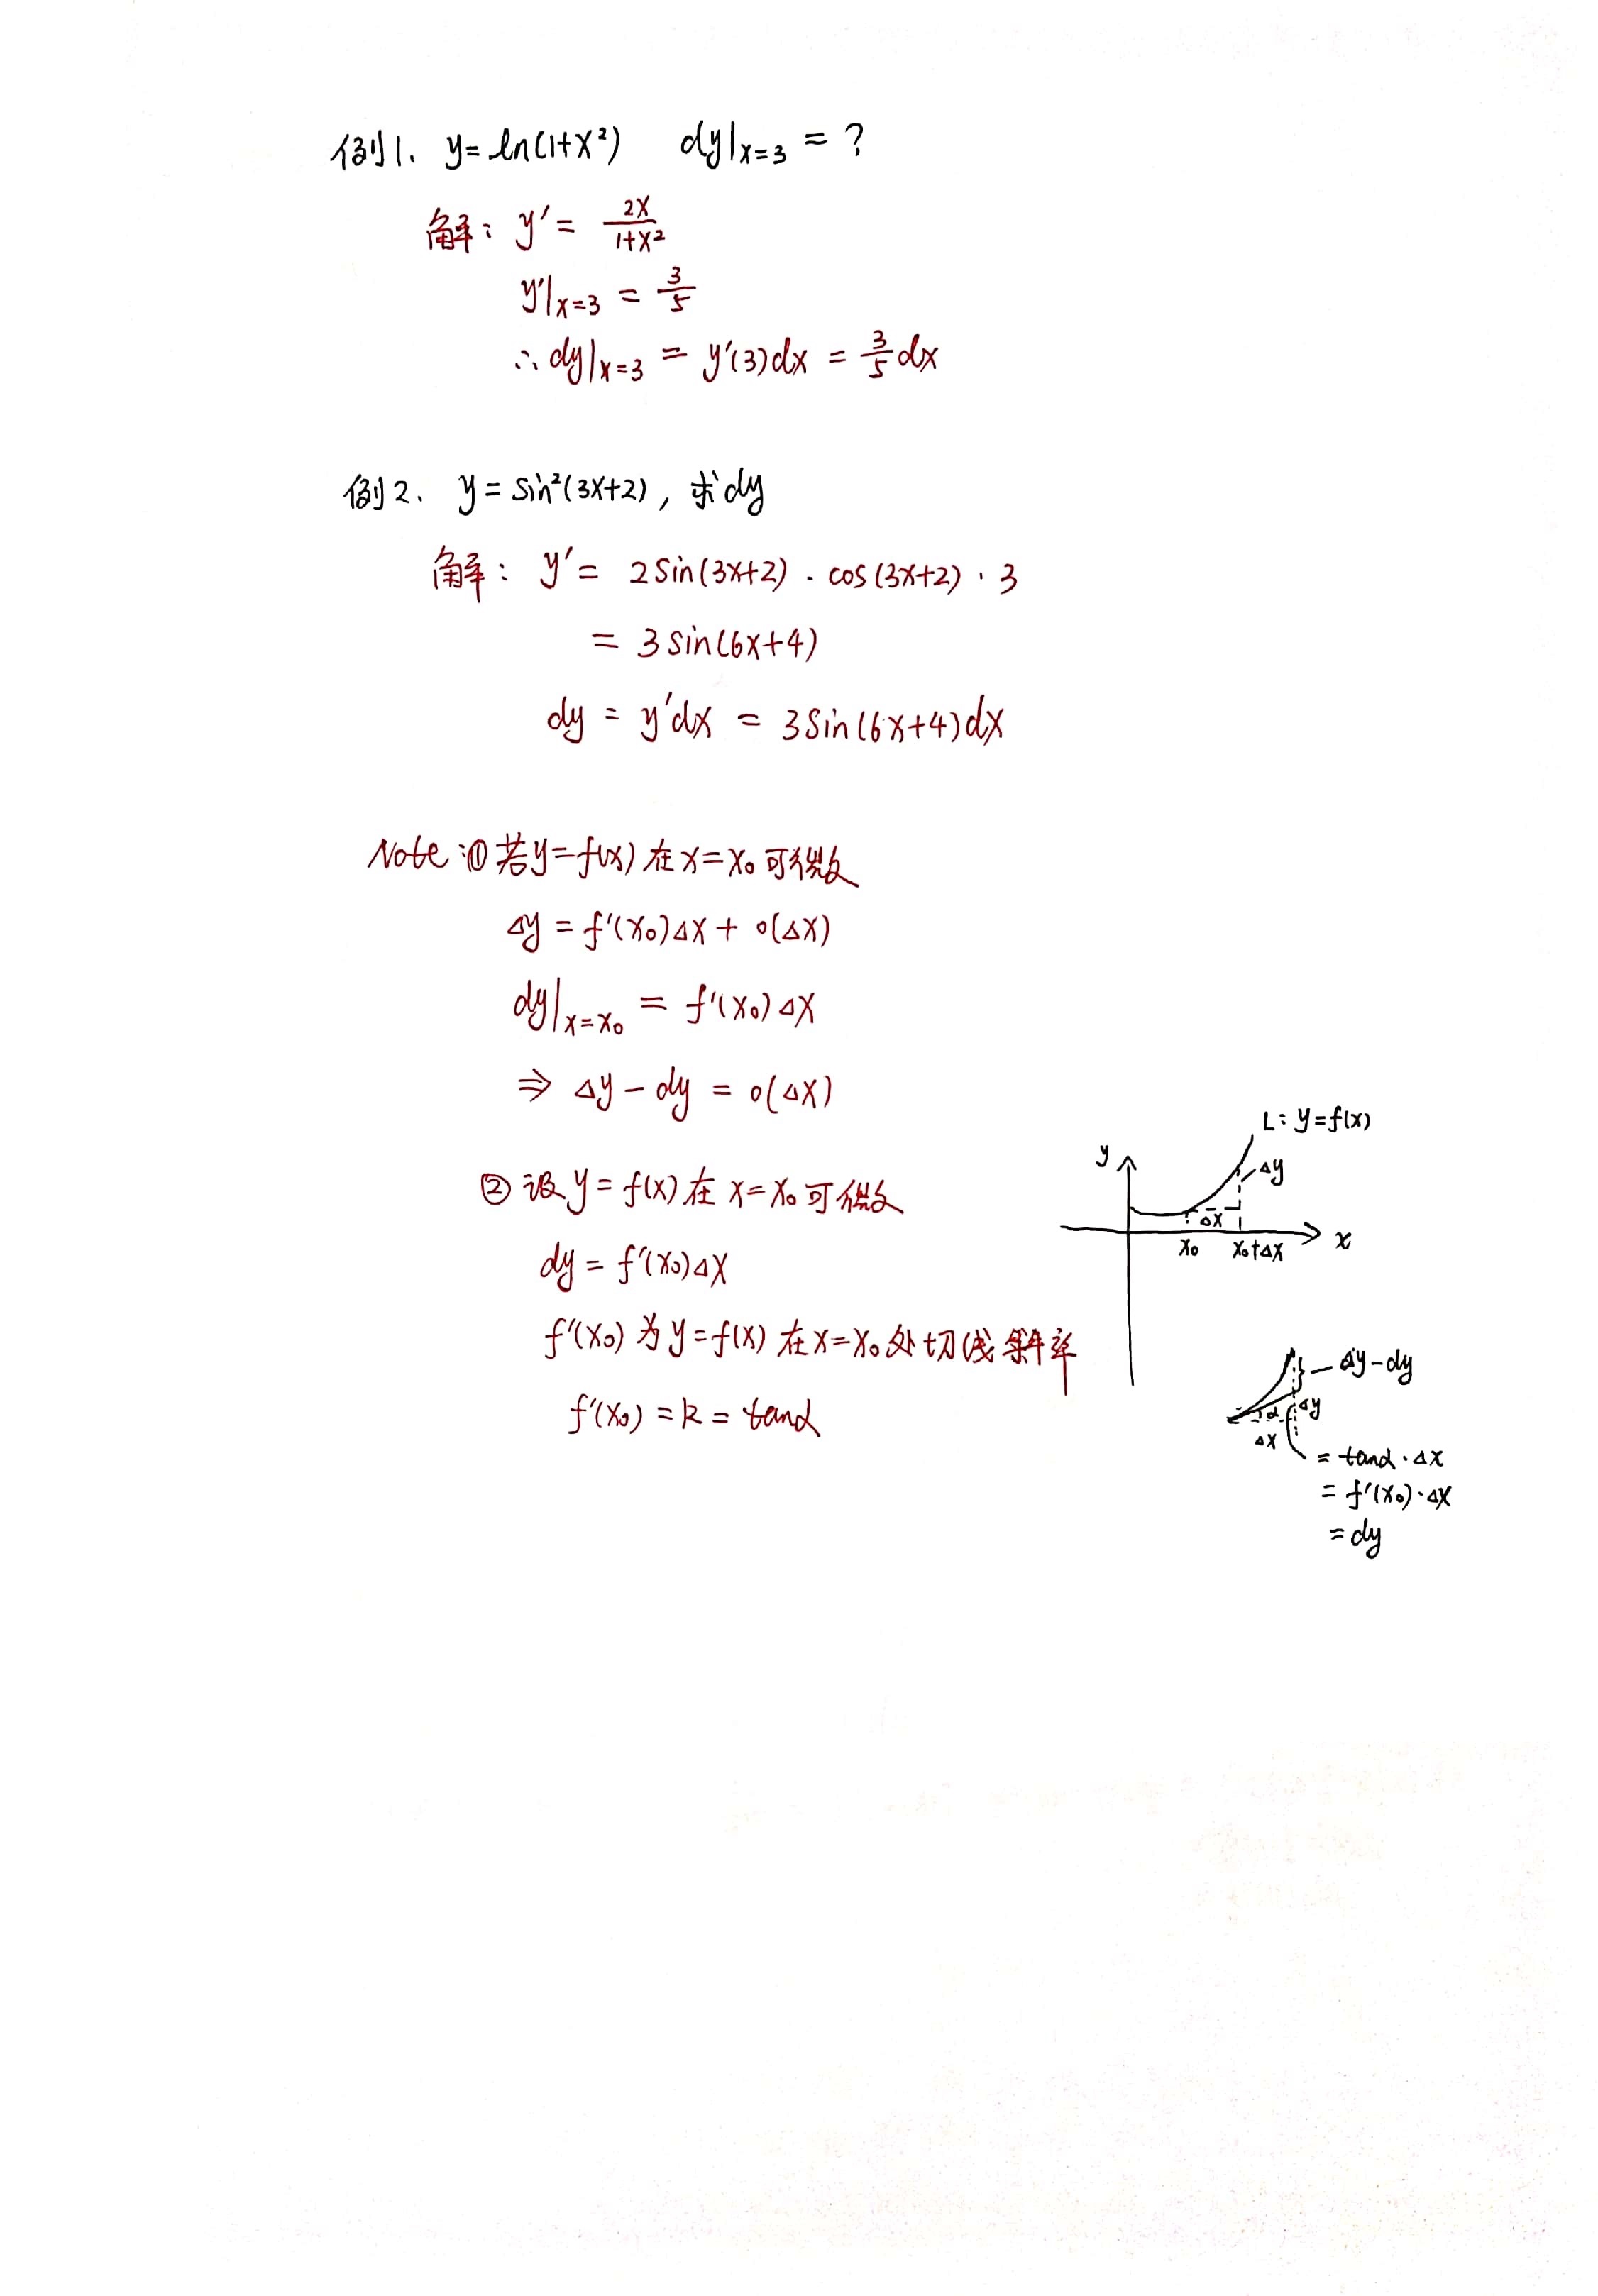 例1、 y=ln(1+x²)  dy|x=3 = ?
解: y′= 2x/(1+x²)
y′|x=3 = 3/5
∴ dy|x=3 = y′(3)dx = 3/5 dx
例2、 y=sin²(3x+2), 求dy
解: y′= 2sin(3x+2)·cos(3x+2)·3
= 3sin(6x+4)
dy = y′dx = 3sin(6x+4)dx
Note:① 若y=f(x)在x=x₀可微
Δy = f′(x₀)Δx + o(Δx)
dy|x=x₀ = f′(x₀)Δx
⇒ Δy-dy = o(Δx)
② 设y=f(x)在x=x₀可微
dy = f′(x₀)Δx
f′(x₀)为y=f(x)在x=x₀处切线斜率
f′(x₀)=k=tanα
L: y=f(x)
y
Δy
Δx
x₀ x₀+Δx x
Δy-dy
α Δy
Δx
= tanα·Δx
= f′(x₀)·Δx
= dy